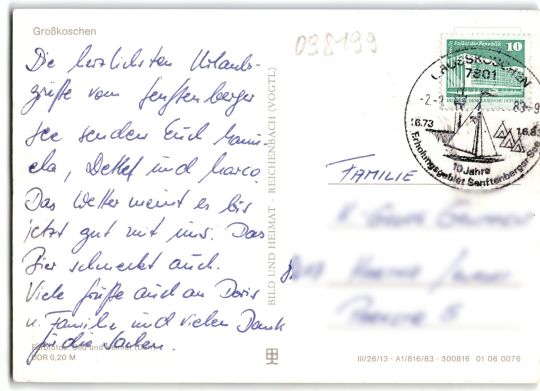 Großkoschen
098199
Die herzlichsten Urlaubs-
grüße vom Senftenberger
See senden Euch Manu-
ela, Detlef und Marco.
Das Wetter meint es bis
jetzt gut mit uns. Das
Bier schmeckt auch.
Viele Grüße auch an Doris
u. Familie, und vielen Dank
für die Karten.
DDR 0,20 M
BILD UND HEIMAT · REICHENBACH (VOGTL)
Palast der Republik
10
GROSSKOSCHEN
7801
-2.-
83-9
1.6.73
1.6.83
10 Jahre
Erholungsgebiet Senftenberger See
FAMILIE
III/26/13 · A1/816/83 · 300816 01 06 0076